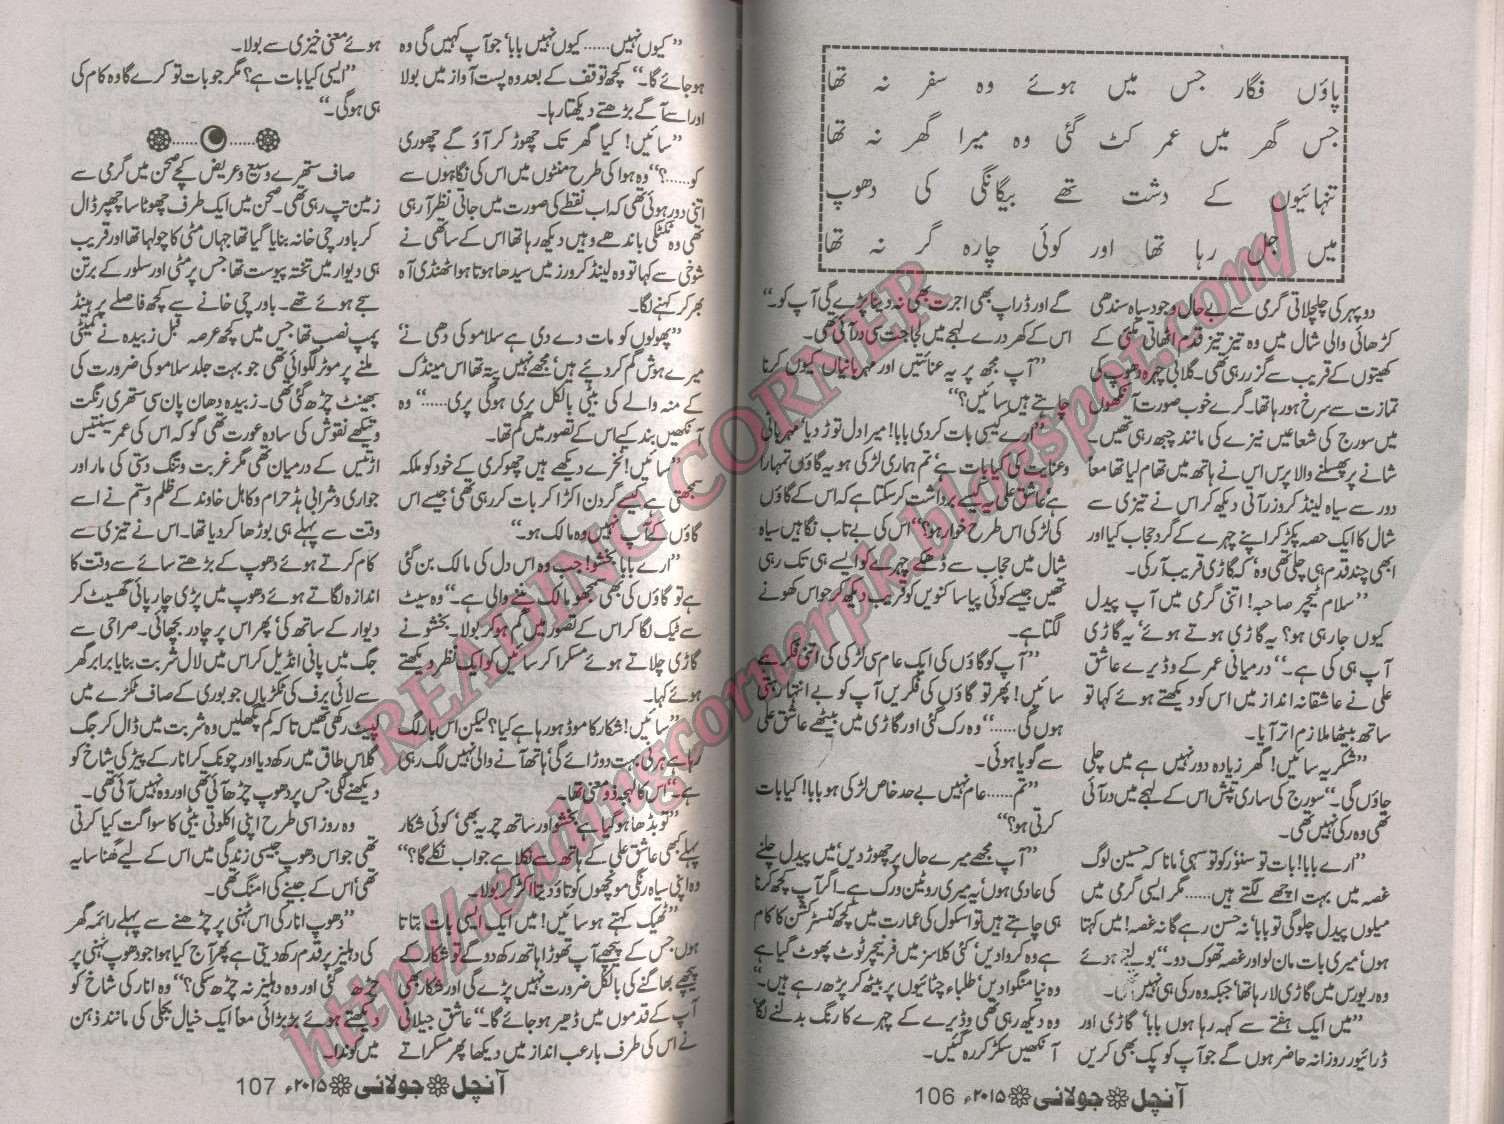 پاؤں فگار جس میں ہوئے وہ سفر نہ تھا
جس گھر میں عمر کٹ گئی وہ میرا گھر نہ تھا
تنہائیوں کے دشت تھے بیگانگی کی دھوپ
میں جل رہا تھا اور کوئی چارہ گر نہ تھا
دوپہر کی چلچلاتی گرمی سے بے حال وجود سیاہ سندھی
کڑھائی والی شال میں وہ تیز تیز قدم اٹھاتی مکئی کے
کھیتوں کے قریب سے گزر رہی تھی۔ گلابی چہرہ دھوپ کی
تمازت سے سرخ ہو رہا تھا۔ گرے خوب صورت آنکھوں
میں سورج کی شعاعیں نیزے کی مانند چبھ رہی تھیں۔
شانے پر پھسلنے والا پرس اس نے ہاتھ میں تھام لیا تھا معاً
دور سے سیاہ لینڈ کروزر آتی دیکھ کر اس نے تیزی سے
شال کا ایک حصہ پکڑ کر اپنے چہرے کے گرد حجاب کیا اور
ابھی چند قدم ہی چلی تھی وہ‘ کہ گاڑی قریب آ رکی۔
”سلام ٹیچر صاحبہ! اتنی گرمی میں آپ پیدل
کیوں جا رہی ہو؟ یہ گاڑی ہوتے ہوئے‘ یہ گاڑی
آپ ہی کی ہے۔“ درمیانی عمر کے وڈیرے عاشق
علی نے عاشقانہ انداز میں اس کو دیکھتے ہوئے کہا تو
ساتھ بیٹھا ملازم اتر آیا۔
”شکریہ سائیں! گھر زیادہ دور نہیں ہے میں چلی
جاؤں گی۔“ سورج کی ساری تپش اس کے لہجے میں در آئی
تھی وہ رکی نہیں تھی۔
”ارے بابا! بات تو سنو‘ رکو تو سہی‘ مانا کہ حسین لوگ
غصہ میں بہت اچھے لگتے ہیں...... مگر ایسی گرمی میں
میلوں پیدل چلو گی تو بابا‘ نہ حسن رہے گا نہ غصہ! میں کہتا
ہوں‘ میری بات مان لو اور غصہ تھوک دو۔“ بولتے ہوئے
وہ ریورس میں گاڑی لا رہا تھا‘ جبکہ وہ رکی ہی نہیں۔
”میں ایک ہفتے سے کہہ رہا ہوں بابا‘ گاڑی اور
ڈرائیور روزانہ حاضر ہوں گے جو آپ کو پک بھی کریں
گے اور ڈراپ بھی اجرت بھی نہ دینا پڑے گی آپ کو۔“
اس کے کھردرے لہجے میں لجاجت سی در آئی تھی۔
”آپ مجھ پر یہ عنائتیں اور مہربانیاں کیوں کرنا
چاہتے ہیں سائیں؟“
”ارے کیسی بات کر دی بابا! میرا دل توڑ دیا‘ مہربانی
و عنایت کی کیا بات ہے‘ تم ہماری لڑکی ہو یہ گاؤں تمہارا
ہے‘ عاشق علی یہ کیسے برداشت کر سکتا ہے کہ اس کے گاؤں
کی لڑکی اس طرح خوار ہو؟“ اس کی بے تاب نگاہیں سیاہ
شال میں حجاب سے ڈھکے چہرے کو ایسے ہی تک رہی
تھیں جیسے کوئی پیاسا کنویں کو قریب دیکھ کر حواس کھونے
لگتا ہے۔
”آپ کو گاؤں کی ایک عام سی لڑکی کی اتنی فکر ہے
سائیں! پھر تو گاؤں کی فکریں آپ کو بے انتہا رہتی
ہوں گی......“ وہ رک گئی اور گاڑی میں بیٹھے عاشق علی
سے گویا ہوئی۔
”تم...... عام نہیں بے حد خاص لڑکی ہو بابا! کیا بات
کرتی ہو؟“
”آپ مجھے میرے حال پر چھوڑ دیں‘ میں پیدل چلنے
کی عادی ہوں‘ یہ میری روٹین ورک ہے۔ اگر آپ کچھ کرنا
ہی چاہتے ہیں تو اسکول کی عمارت میں کچھ کنسٹرکشن کا کام
ہے وہ کروا دیں‘ کئی کلاسز میں فرنیچر ٹوٹ پھوٹ گیا ہے
وہ نیا منگوا دیں‘ طلباء چٹائیوں پر بیٹھ کر پڑھ رہے ہیں۔“
وہ دیکھ رہی تھی وڈیرے کے چہرے کا رنگ بدلنے لگا‘
آنکھیں سکڑ کر رہ گئیں۔
آنچل جولائی ۲۰۱۵ء 106
”کیوں نہیں...... کیوں نہیں بابا‘ جو آپ کہیں گی وہ
ہو جائے گا۔“ کچھ توقف کے بعد وہ پست آواز میں بولا
اور اسے آگے بڑھتے دیکھتا رہا۔
”سائیں! کیا گھر تک چھوڑ کر آؤ گے چھوری
کو......؟“ وہ ہوا کی طرح منٹوں میں اس کی نگاہوں سے
اتنی دور ہوئی تھی کہ اب نقطے کی صورت میں جاتی نظر آ رہی
تھی وہ ٹکٹکی باندھے وہیں دیکھ رہا تھا اس کے ساتھی نے
شوخی سے کہا تو وہ لینڈ کروزر میں سیدھا ہوتا ہوا ٹھنڈی آہ
بھر کر کہنے لگا۔
”پھولوں کو مات دے دی ہے سلامو کی دھی نے‘
میرے ہوش گم کر دیئے ہیں‘ مجھے نہیں پتہ تھا اس مینڈک
کے منہ والے کی بیٹی بالکل پری ہو گی پری......“ وہ
آنکھیں بند کیے اس کے تصور میں گم تھا۔
”سائیں! نخرے دیکھے ہیں چھوکری کے خود کو ملکہ
سمجھتی ہے کیسے گردن اکڑا کر بات کر رہی تھی‘ جیسے اس
گاؤں کے آپ نہیں وہ مالک ہو۔“
”ارے بابا بخشو! جب وہ اس دل کی مالک بن گئی
ہے تو گاؤں کی بھی سمجھو مالک بننے والی ہے۔“ وہ سیٹ
سے ٹیک لگا کر اس کے تصور میں گم ہو کر بولا۔ بخشو نے
گاڑی چلاتے ہوئے مسکرا کر سائیں کو ایک نظر دیکھتے
ہوئے کہا۔
”سائیں! شکار کا موڈ ہو رہا ہے کیا؟ لیکن اس بار لگ
رہا ہے ہرنی بہت دوڑائے گی‘ ہاتھ آنے والی نہیں لگ رہی
ہے۔“ اس کا لہجہ ذو معنی تھا۔
”تو بڈھا ہو گیا ہے بخشو اور ساتھ چریہ بھی‘ کوئی شکار
پہلے کبھی عاشق علی کے ہاتھ سے نکلا ہے جو اب نکلے گا؟“
وہ اپنی سیاہ رنگی مونچھوں کو تاؤ دیتا اکڑ کر بولا۔
”ٹھیک کہتے ہو سائیں! میں ایک ایسی بات بتاتا
ہوں جس کے پیچھے آپ تھوڑا ہاتھ رکھ دو گے تو شکار کے
پیچھے بھاگنے کی بالکل ضرورت نہیں پڑے گی اور شکار بھی
آپ کے قدموں میں ڈھیر ہو جائے گا۔“ عاشق جیلانی
نے اس کی طرف بارعب انداز میں دیکھا پھر مسکراتے
ہوئے معنی خیزی سے بولا۔
”ایسی کیا بات ہے؟ مگر جو بات تو کرے گا وہ کام کی
ہی ہو گی۔“
صاف ستھرے وسیع و عریض کچے صحن میں گرمی سے
زمین تپ رہی تھی۔ صحن میں ایک طرف چھوٹا سا چھپر ڈال
کر باورچی خانہ بنایا گیا تھا جہاں مٹی کا چولہا تھا اور قریب
ہی دیوار میں تختہ پیوست تھا جس پر مٹی اور سلور کے برتن
سجے ہوئے تھے۔ باورچی خانے سے کچھ فاصلے پر ہینڈ
پمپ نصب تھا جس میں کچھ عرصہ قبل زبیدہ نے کمیٹی
ملنے پر موٹر لگوائی تھی جو بہت جلد سلامو کی ضرورت کی
بھینٹ چڑھ گئی تھی۔ زبیدہ دھان پان سی ستھری رنگت
و تیکھے نقوش کی سادہ عورت تھی گو کہ اس کی عمر سینتیس
اڑتیس کے درمیان تھی مگر غربت و تنگ دستی کی مار اور
جواری و شرابی ہڈ حرام و کاہل خاوند کے ظلم و ستم نے اسے
وقت سے پہلے ہی بوڑھا کر دیا تھا۔ اس نے تیزی سے
کام کرتے ہوئے دھوپ کے بڑھتے سائے سے وقت کا
اندازہ لگاتے ہوئے دھوپ میں پڑی چارپائی گھسیٹ کر
دیوار کے ساتھ کی‘ پھر اس پر چادر بچھائی۔ صراحی سے
جگ میں پانی انڈیل کر اس میں لال شربت بنایا برابر گھر
سے لائی برف کی ٹکڑیاں جو بوری کے صاف ٹکڑے میں
لپیٹ رکھی تھیں تاکہ کم پگھلیں وہ شربت میں ڈال کر جگ
گلاس طاق میں رکھ دیا اور چونک کر انار کے پیڑ کی شاخ کو
دیکھنے لگی جس پر دھوپ چڑھ آئی تھی اور وہ نہیں آئی تھی۔
وہ روز اسی طرح اپنی اکلوتی بیٹی کا سواگت کیا کرتی
تھی جو اس دھوپ جیسی زندگی میں اس کے لیے گھنا سایہ
تھی‘ اس کے جینے کی امنگ تھی۔
”دھوپ انار کی اس ٹہنی پر چڑھنے سے پہلے رائمہ گھر
کی دہلیز پر قدم رکھ دیتی ہے پھر آج کیا ہوا جو دھوپ ٹہنی پر
چڑھ گئی اور وہ دہلیز نہ چڑھ سکی؟“ وہ انار کی شاخ کو
دیکھتے ہوئے بڑبڑائی معاً ایک خیال بجلی کی مانند ذہن
میں کوندا۔
آنچل جولائی ۲۰۱۵ء 107
READING CORNER
http://readingcornerpk.blogspot.com/